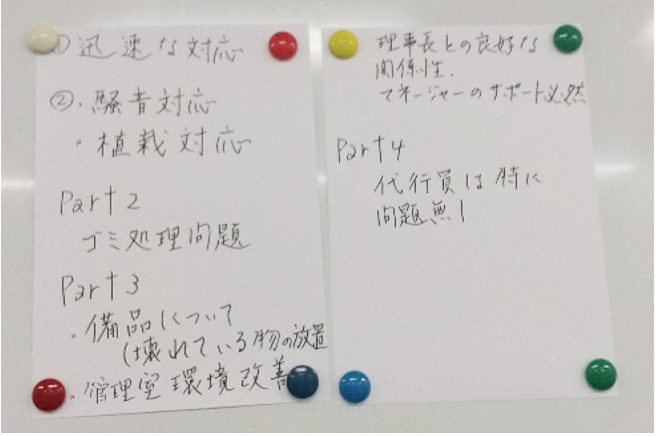 ① 迅速な対応
②・騒音対応
・植栽対応
Part 2
ゴミ処理問題
Part 3
・備品について
(壊れている物の放置
・管理室環境改善
理事長との良好な
関係性.
マネージャーのサポート必然
Part 4
代行員は特に
問題無し